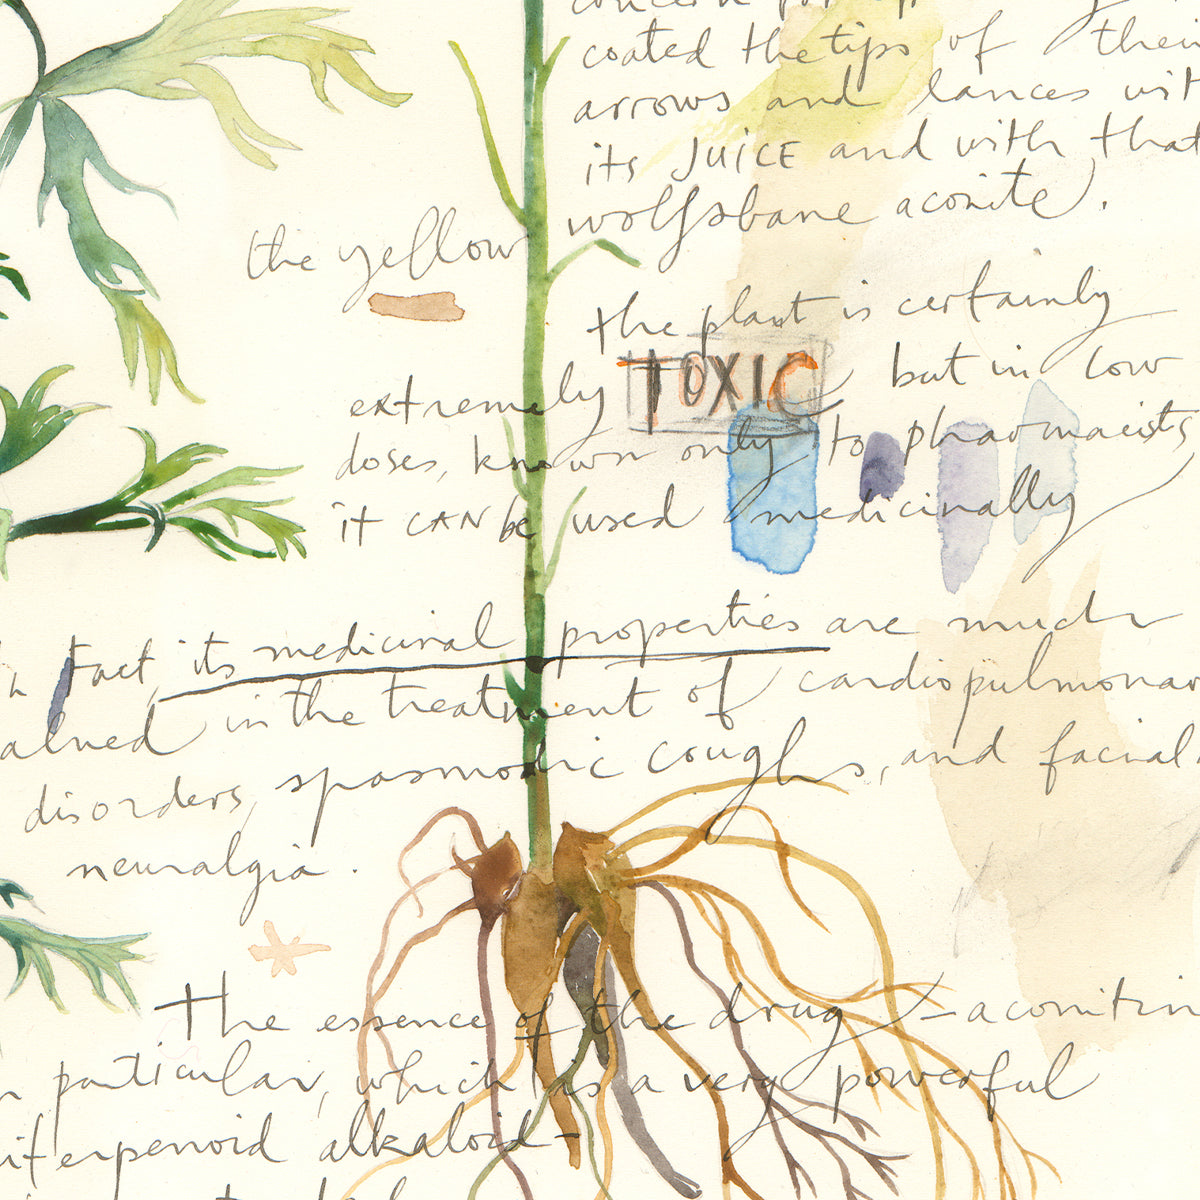 coated the tips of their
arrows and lances wit
its JUICE and with that
the yellow wolfsbane aconite.
the plant is certainly
extremely TOXIC but in low
doses, known only to pharmacists,
it CAN be used medicinally
fact its medicinal properties are much
alued in the treatment of cardiopulmonar
disorders, spasmodic coughs, and facial
neuralgia.
The essence of the drug - aconitin
particular, which is a very powerful
iterpenoid alkaloid-